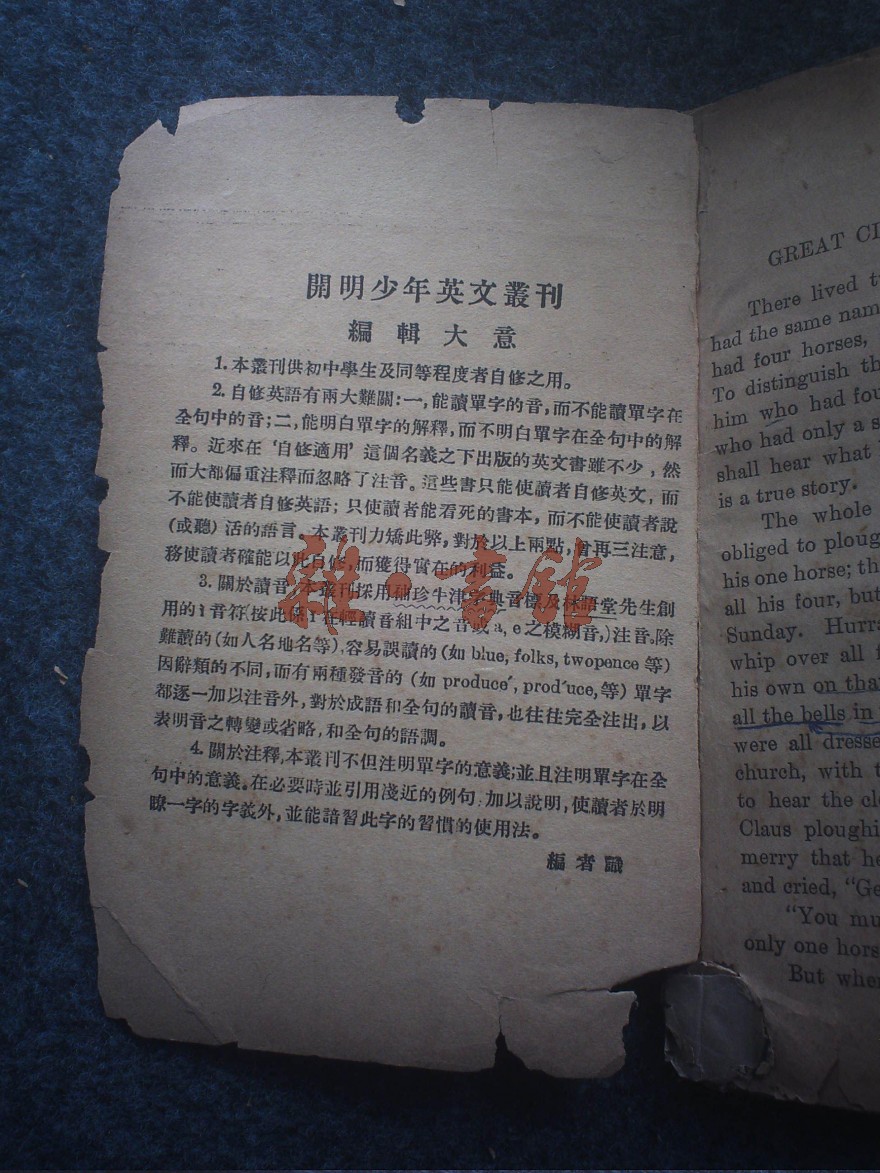 開明少年英文叢刊
編輯大意
1.本叢刊供初中學生及同等程度者自修之用。
2.自修英語有兩大難關:一,能讀單字的音,而不能讀單字在
全句中的音;二,能明白單字的解釋,而不明白單字在全句中的解
釋。近來在‘自修適用’這個名義之下出版的英文書雖不少,然
而大都偏重注釋而忽略了注音。這些書只能使讀者自修英文,而
不能使讀者自修英語;只使讀者能看死的書本,而不能使讀者說
(或聽)活的語言。本叢刊力矯此弊,對於以上兩點,曾再三注意,
務使讀者確能以此自修,而獲得實在的利益。
3.關於讀音,本叢刊採用袖珍牛津字典音標及林語堂先生創
用的 音符(按此係 在輕讀音組中之音或a, e之模糊音,)注音。除
難讀的(如人名地名等),容易誤讀的(如blue, folks, twopence等)
因辭類的不同,而有兩種發音的(如produce′, prod′uce,等)單字
都逐一加以注音外,對於成語和全句的讀音,也往往完全注出,以
表明音之轉變或省略,和全句的語調。
4.關於注釋,本叢刊不但注明單字的意義;並且注明單字在全
句中的意義。在必要時並引用淺近的例句,加以說明,使讀者於明
瞭一字的字義外,並能諳習此字的習慣的使用法。
編者識
雜·書館
GREAT
There lived
had the same
had four horses,
To distinguish
him who had
who had only a
shall hear what
is a true story.
The whole
obliged to
his one horse;
all his four, but
Sunday.
whip over all
his own on
all the bells in
were all
church, with
to hear the
Claus
merry that
and cried,
"You
only one
But